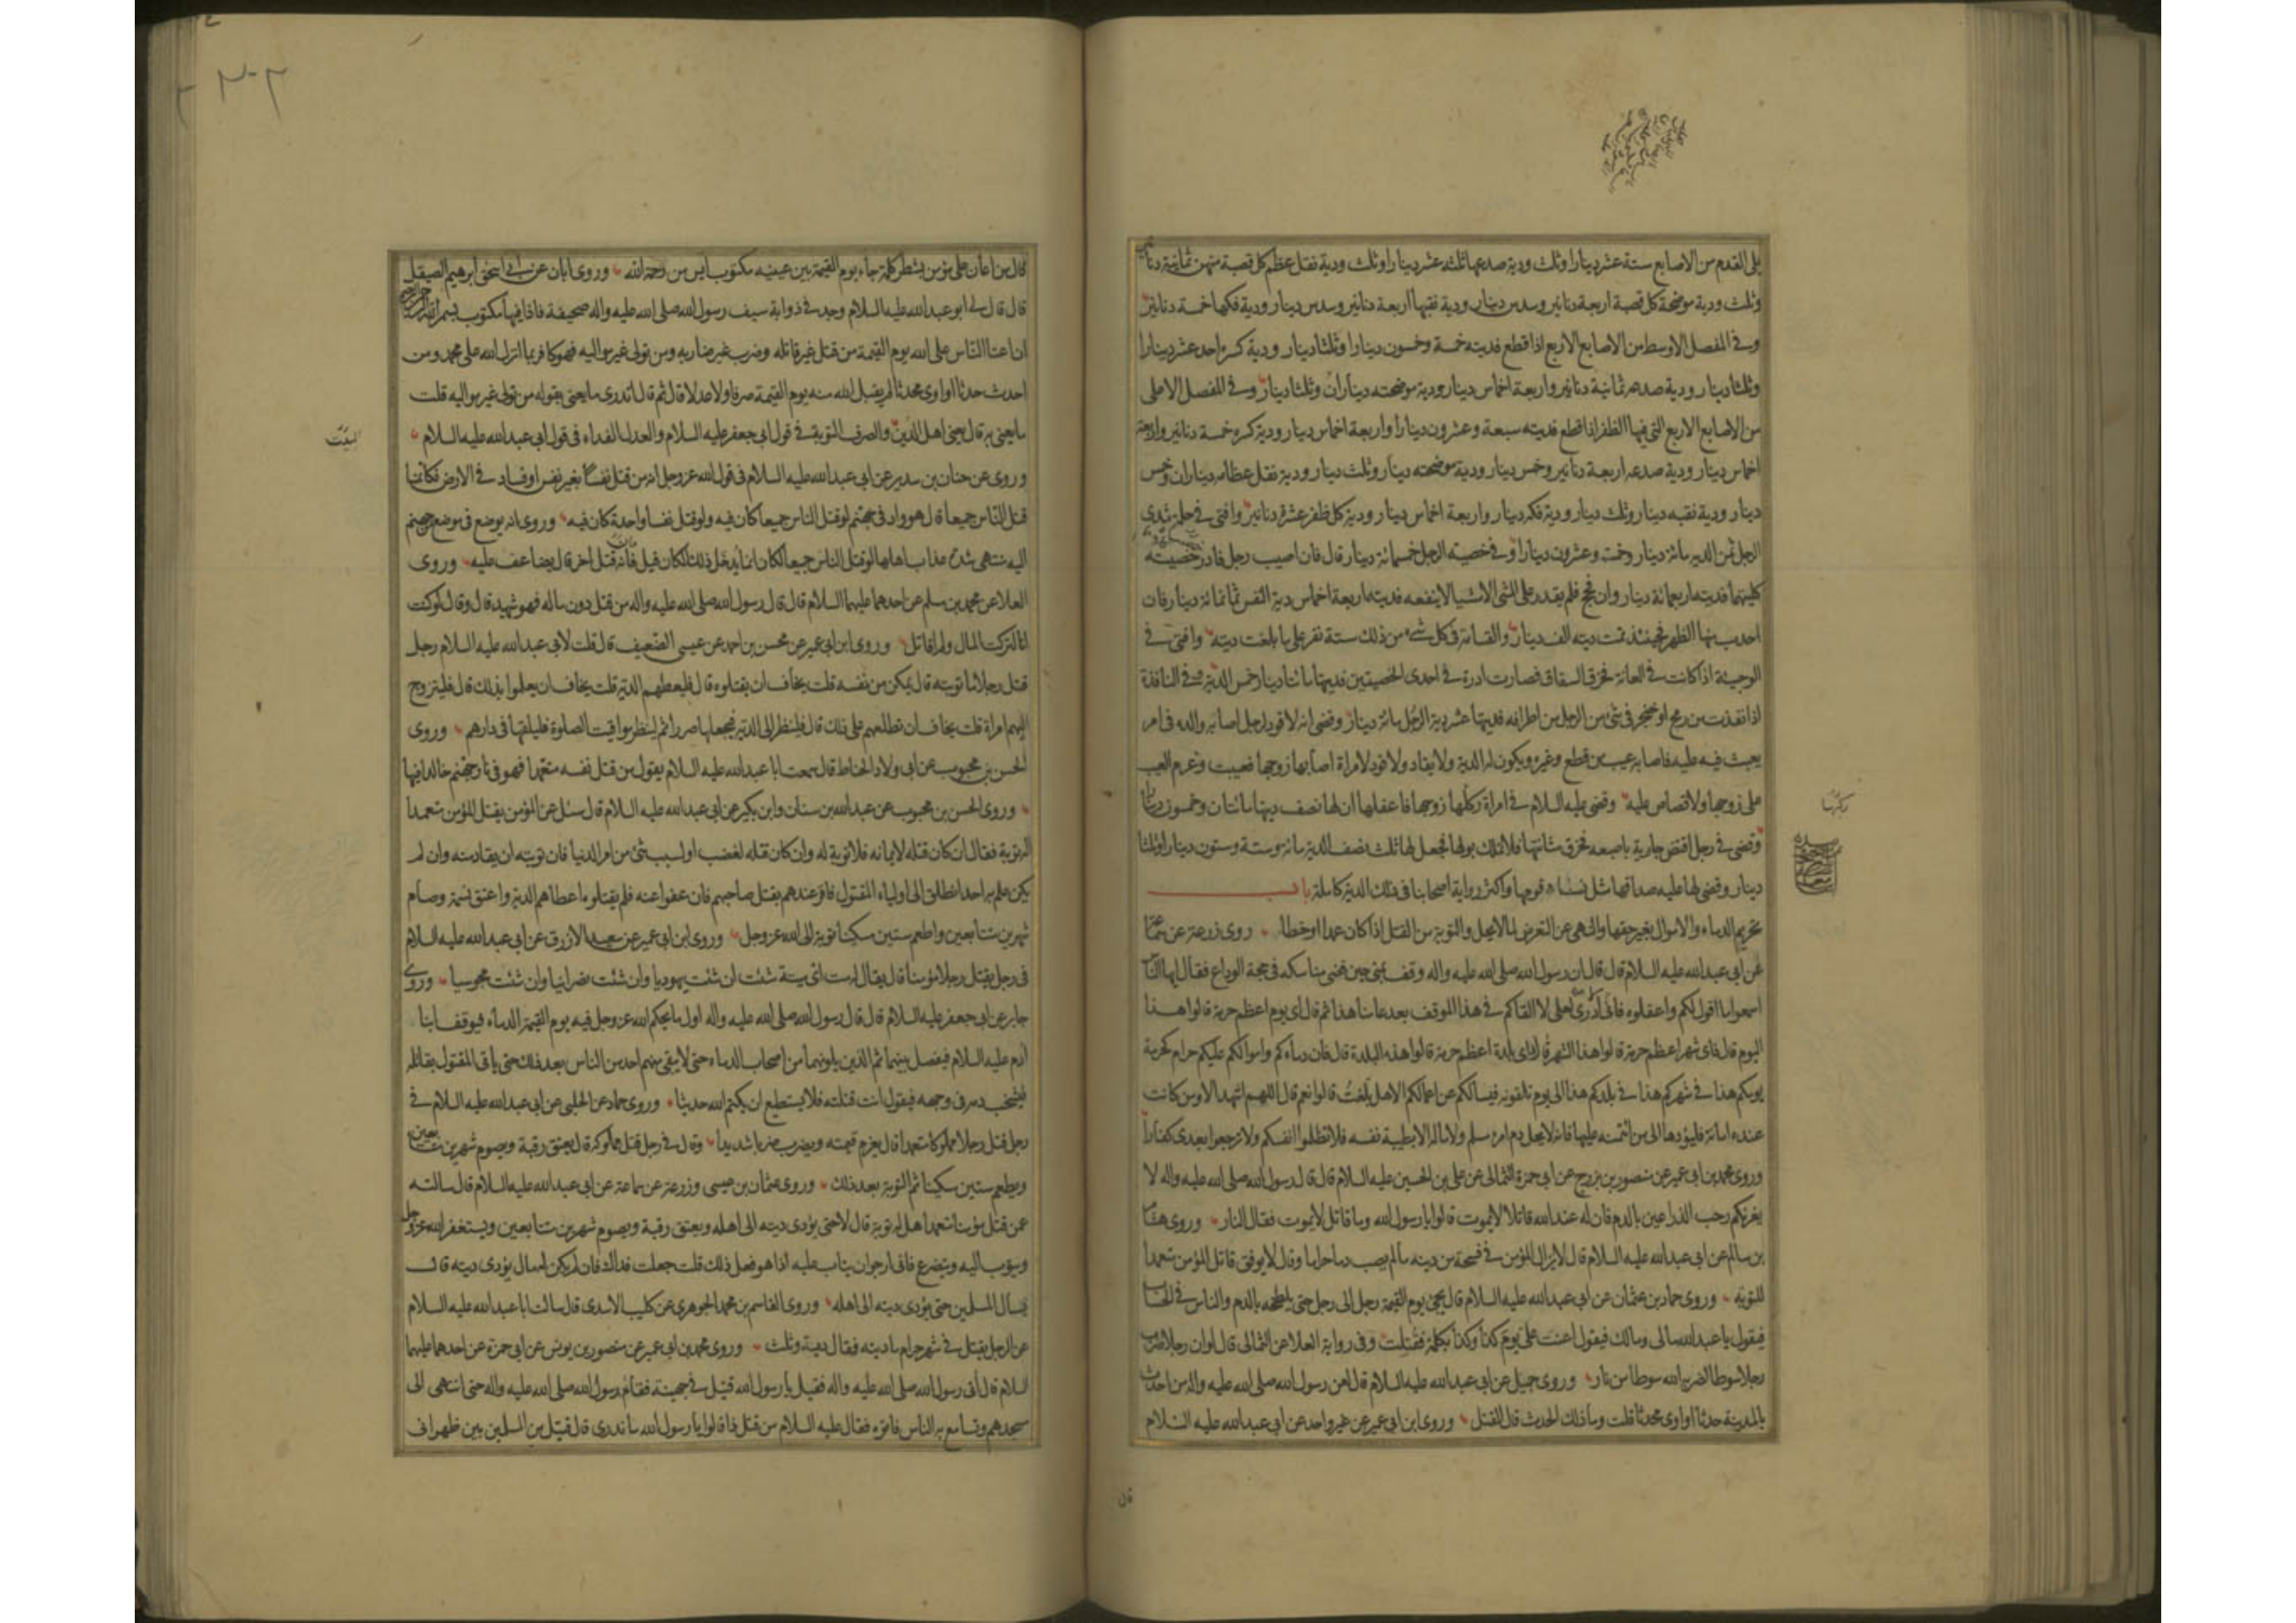 يلى القدم من الاصابع ستة عشر دينارا وثلث ودية صدعها ثلثه عشر دينارا وثلث ودية نقل عظم كل قصبة منهن ثمانية دنانير
وثلث ودية موضحة كل قصبة اربعة دنانير وسدس دينار ودية نقبها اربعة دنانير وسدس دينار ودية فكها خمسة دنانير
وفى المفصل الاوسط من الاصابع الاربع اذا قطع فديته خمسة وخمسون دينارا وثلثا دينار ودية كسره احد عشر دينارا
وثلثا دينار ودية صدعه ثمانية دنانير واربعة اخماس دينار ودية موضحته ديناران وثلثا دينار وفى المفصل الاعلى
من الاصابع الاربع التى فيها الظفر اذا قطع فديته سبعة وعشرون دينارا واربعة اخماس دينار ودية كسره خمسة دنانير واربعة
اخماس دينار ودية صدعه اربعة دنانير وخمس دينار ودية موضحته دينار وثلث دينار ودية نقل عظامه ديناران وخمس
دينار ودية نقبه دينار وثلث دينار ودية فكه دينار واربعة اخماس دينار ودية كل ظفر عشرة دنانير وافتى فى حلمة ثدى
الرجل ثمن الدية مائة دينار وخمسة وعشرون دينارا وفى خصية الرجل خمسمائة دينار قال فان اصيب رجل فادر خصيتيه
كلتيهما فديته اربعمائة دينار وان فحج فلم يقدر على المشى الا مشيا لا ينفعه فديته اربعة اخماس دية النفس ثمانمائة دينار فان
احدب منها الظهر فحينئذ تمت ديته الف دينار والقسامة فى كل شىء من ذلك ستة نفر على ما بلغت ديته وافتى فى
الوجيئة اذا كانت فى العانة فخرق السفاق فصارت ادرة فى احدى الخصيتين فديتها مائتا دينار خمس الدية وفى النافذة
اذا نفذت من رمح او خنجر فى شئ من الرجل من اطرافه فديتها عشر دية الرجل مائة دينار وقضى انه لا قود لرجل اصابه والده فى امر
يعيب فيه عليه فاصابه عيب من قطع وغيره ويكون له الدية ولا يقاد ولا قود لامراة اصابها زوجها فعيبت وغرم العيب
على زوجها ولا قصاص عليه وقضى عليه السلام فى امراة ركلها زوجها فاعفلها ان لها نصف ديتها مائتان وخمسون دينارا
وقضى فى رجل اقتض جارية باصبعه فخرق مثانتها فلا تملك بولها فجعل لها ثلث نصف الدية مائة وستة وستون دينارا وثلثا
دينار وقضى لها عليه صداقها مثل نساء قومها واكثر رواية اصحابنا فى ذلك الدية كاملة باب
تحريم الدماء والاموال بغير حقها والنهى عن التعرض لما لا يحل والتوبة من القتل اذا كان عمدا او خطا روى زرعة عن سماعة
عن ابى عبدالله عليه السلام قال قال ان رسول الله صلى الله عليه واله وقف بمنى حين قضى مناسكه فى حجة الوداع فقال ايها الناس
اسمعوا ما اقول لكم واعقلوه فانى لا ادرى لعلى لا القاكم فى هذا الموقف بعد عامنا هذا ثم قال اى يوم اعظم حرمة قالوا هذا
اليوم قال فاى شهر اعظم حرمة قالوا هذا الشهر قال فاى بلدة اعظم حرمة قالوا هذه البلدة قال فان دماءكم واموالكم عليكم حرام كحرمة
يومكم هذا فى شهركم هذا فى بلدكم هذا الى يوم تلقونه فيسألكم عن اعمالكم الا هل بلغت قالوا نعم قال اللهم اشهد الا ومن كانت
عنده امانة فليؤدها الى من ائتمنه عليها فانه لا يحل دم امرء مسلم ولا ماله الا بطيبة نفسه فلا تظلموا انفسكم ولا ترجعوا بعدى كفارا
وروى محمد بن ابى عمير عن منصور بن بزرج عن ابى حمزة الثمالى عن على بن الحسين عليه السلام قال قال رسول الله صلى الله عليه واله لا
يغرنكم رحب الذراعين بالدم فان له عند الله قاتلا لا يموت قالوا يا رسول الله وما قاتل لا يموت فقال النار وروى هشام
بن سالم عن ابى عبدالله عليه السلام قال لا يزال المؤمن فى فسحة من دينه ما لم يصب دما حراما وقال لا يوفق قاتل المؤمن متعمدا
للتوبة وروى حماد بن عثمان عن ابى عبدالله عليه السلام قال يجئ يوم القيمة رجل الى رجل حتى يلطخه بالدم والناس فى الحساب
فيقول يا عبدالله مالى ومالك فيقول اعنت على يوم كذا وكذا بكلمة فقتلت وفى رواية العلا عن الثمالى قال لو ان رجلا ضرب
رجلا سوطا لضربه الله سوطا من نار وروى جميل عن ابى عبدالله عليه السلام قال لعن رسول الله صلى الله عليه واله من احدث
بالمدينة حدثا او اوى محدثا قلت وما ذلك الحدث قال القتل وروى ابن ابى عمير عن غير واحد عن ابى عبدالله عليه السلام
قال
ركبها
قال من اعان على مؤمن بشطر كلمة جاء يوم القيمة بين عينيه مكتوب ايس من رحمة الله وروى ابان عن ابى اسحق ابرهيم الصيقل
قال قال لى ابو عبدالله عليه السلام وجد فى ذوابة سيف رسول الله صلى الله عليه واله صحيفة فاذا فيها مكتوب بسم الله الرحمن الرحيم
ان اعتا الناس على الله يوم القيمة من قتل غير قاتله وضرب غير ضاربه ومن تولى غير مواليه فهو كافر بما انزل الله على محمد ومن
احدث حدثا او اوى محدثا لم يقبل الله منه يوم القيمة صرفا ولا عدلا قال ثم قال تدرى ما يعنى بقوله من تولى غير مواليه قلت
ما يعنى به قال يعنى اهل الدين والصرف التوبة فى قول ابى جعفر عليه السلام والعدل الفداء فى قول ابى عبدالله عليه السلام
وروى عن حنان بن سدير عن ابى عبدالله عليه السلام فى قول الله عز وجل انه من قتل نفسا بغير نفس او فساد فى الارض فكانما
قتل الناس جميعا قال هو واد فى جهنم لو قتل الناس جميعا كان فيه ولو قتل نفسا واحدة كان فيه وروى انه يوضع فى موضع جهنم
اليه منتهى شدة عذاب اهلها لو قتل الناس جميعا لكان انما يدخل ذلك المكان قيل فانه قتل اخر قال يضاعف عليه وروى
العلا عن محمد بن مسلم عن احدهما عليهما السلام قال قال رسول الله صلى الله عليه واله من قتل دون ماله فهو شهيد قال وقال لو كنت
انا لتركت المال ولم اقاتل وروى ابن ابى عمير عن محسن بن احمد عن عيسى الضعيف قال قلت لابى عبدالله عليه السلام رجل
قتل رجلا ما توبته قال يمكن من نفسه قلت يخاف ان يقتلوه قال فليعطهم الدية قلت يخاف ان يعلموا بذلك قال فليتزوج
اليهم امراة قلت يخاف ان تطلعهم على ذلك قال فلينظر الى الدية فيجعلها صررا ثم لينظر مواقيت الصلوة فليلقها فى دارهم وروى
الحسن بن محبوب عن ابى ولاد الحناط قال سمعت ابا عبدالله عليه السلام يقول من قتل نفسه متعمدا فهو فى نار جهنم خالدا فيها
وروى الحسن بن محبوب عن عبدالله بن سنان وابن بكير عن ابى عبدالله عليه السلام قال سئل عن المؤمن يقتل المؤمن متعمدا
اله توبة فقال ان كان قتله لايمانه فلا توبة له وان كان قتله لغضب او لسبب شئ من امر الدنيا فان توبته ان يقاد منه وان لم
يكن علم به احد انطلق الى اولياء المقتول فاقر عندهم بقتل صاحبهم فان عفوا عنه فلم يقتلوه اعطاهم الدية واعتق نسمة وصام
شهرين متتابعين واطعم ستين مسكينا توبة الى الله عز وجل وروى ابن ابى عمير عن سعيد الازرق عن ابى عبدالله عليه السلام
فى رجل يقتل رجلا مؤمنا قال يقال له مت اى ميتة شئت ان شئت يهوديا وان شئت نصرانيا وان شئت مجوسيا وروى
جابر عن ابى جعفر عليه السلام قال قال رسول الله صلى الله عليه واله اول ما يحكم الله عز وجل فيه يوم القيمة الدماء فيوقف ابنا
ادم عليه السلام فيفصل بينهما ثم الذين يلونهما من اصحاب الدماء حتى لا يبقى منهم احد من الناس بعد ذلك حتى ياتى المقتول بقاتله
فيشخب دمه فى وجهه فيقول انت قتلته فلا يستطيع ان يكتم الله حديثا وروى حماد عن الحلبى عن ابى عبدالله عليه السلام فى
رجل قتل رجلا مملوكا متعمدا قال يغرم قيمته ويضرب ضربا شديدا وقال فى رجل قتل مملوكه قال يعتق رقبة ويصوم شهرين متتابعين
ويطعم ستين مسكينا ثم التوبة بعد ذلك وروى عثمان بن عيسى وزرعة عن سماعة عن ابى عبدالله عليه السلام قال سالته
عن قتل مؤمنا متعمدا هل له توبة قال لا حتى يؤدى ديته الى اهله ويعتق رقبة ويصوم شهرين متتابعين ويستغفر الله عز وجل
ويتوب اليه ويتضرع فانى ارجو ان يتاب عليه اذا هو فعل ذلك قلت جعلت فداك فان لم يكن له مال يؤدى ديته قال
يسأل المسلمين حتى يؤدى ديته الى اهله وروى القاسم بن محمد الجوهرى عن كليب الاسدى قال سالت ابا عبدالله عليه السلام
عن الرجل يقتل فى شهر حرام ما ديته فقال دية وثلث وروى محمد بن ابى عمير عن منصور بن يونس عن ابى حمزة عن احدهما عليهما
السلام قال اتى رسول الله صلى الله عليه واله فقيل يا رسول الله قتيل فى جهينة فقام رسول الله صلى الله عليه واله حتى انتهى الى
مسجدهم وتسامع به الناس فاتوه فقال عليه السلام من قتل ذا قالوا يا رسول الله ما ندرى قال قتيل من المسلمين بين ظهرانى